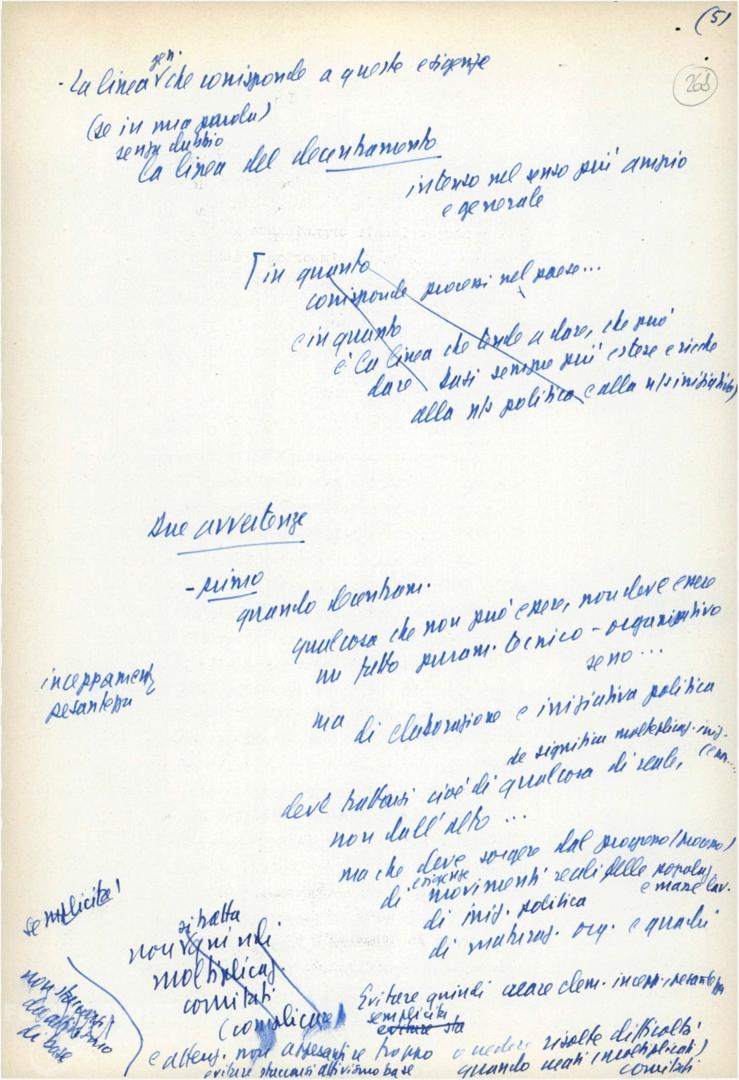 (5)
268
- La linea gen. che corrisponde a queste esigenze
(se in una parola)
senza dubbio
la linea del decentramento
inteso nel senso più ampio
e generale
[in quanto
corrisponde processi nel paese...
e in quanto
è la linea che tende a dare, che può
dare basi sempre più estese e ricche
alla n/s politica e alla n/s iniziativa)
Due avvertenze
- primo
quando decentram.
qualcosa che non può essere, non deve essere
un fatto puram. tecnico-organizzativo
se no...
inceppamenti
pesantezza
ma
di elaborazione e iniziativa politica
se significa moltiplicaz. iniz.
deve trattarsi cioè di qualcosa di reale,
non dall'alto ...
ma che deve sorgere dal
di esigenze movimenti reali delle popolaz.
e masse lav.
di iniz. politica
di maturaz. org. e quadri
semplicità!
si tratta
non quindi
moltiplicaz.
comitati
(complicare)
non staccarsi
dall'attivismo
di base
Evitare quindi creare elem. incepp. pesantezza
semplicità
evitare sta
e attenz. non appesantire troppo o vedere risolte difficoltà
evitare staccarsi attivismo base
quando creati (moltiplicati)
comitati